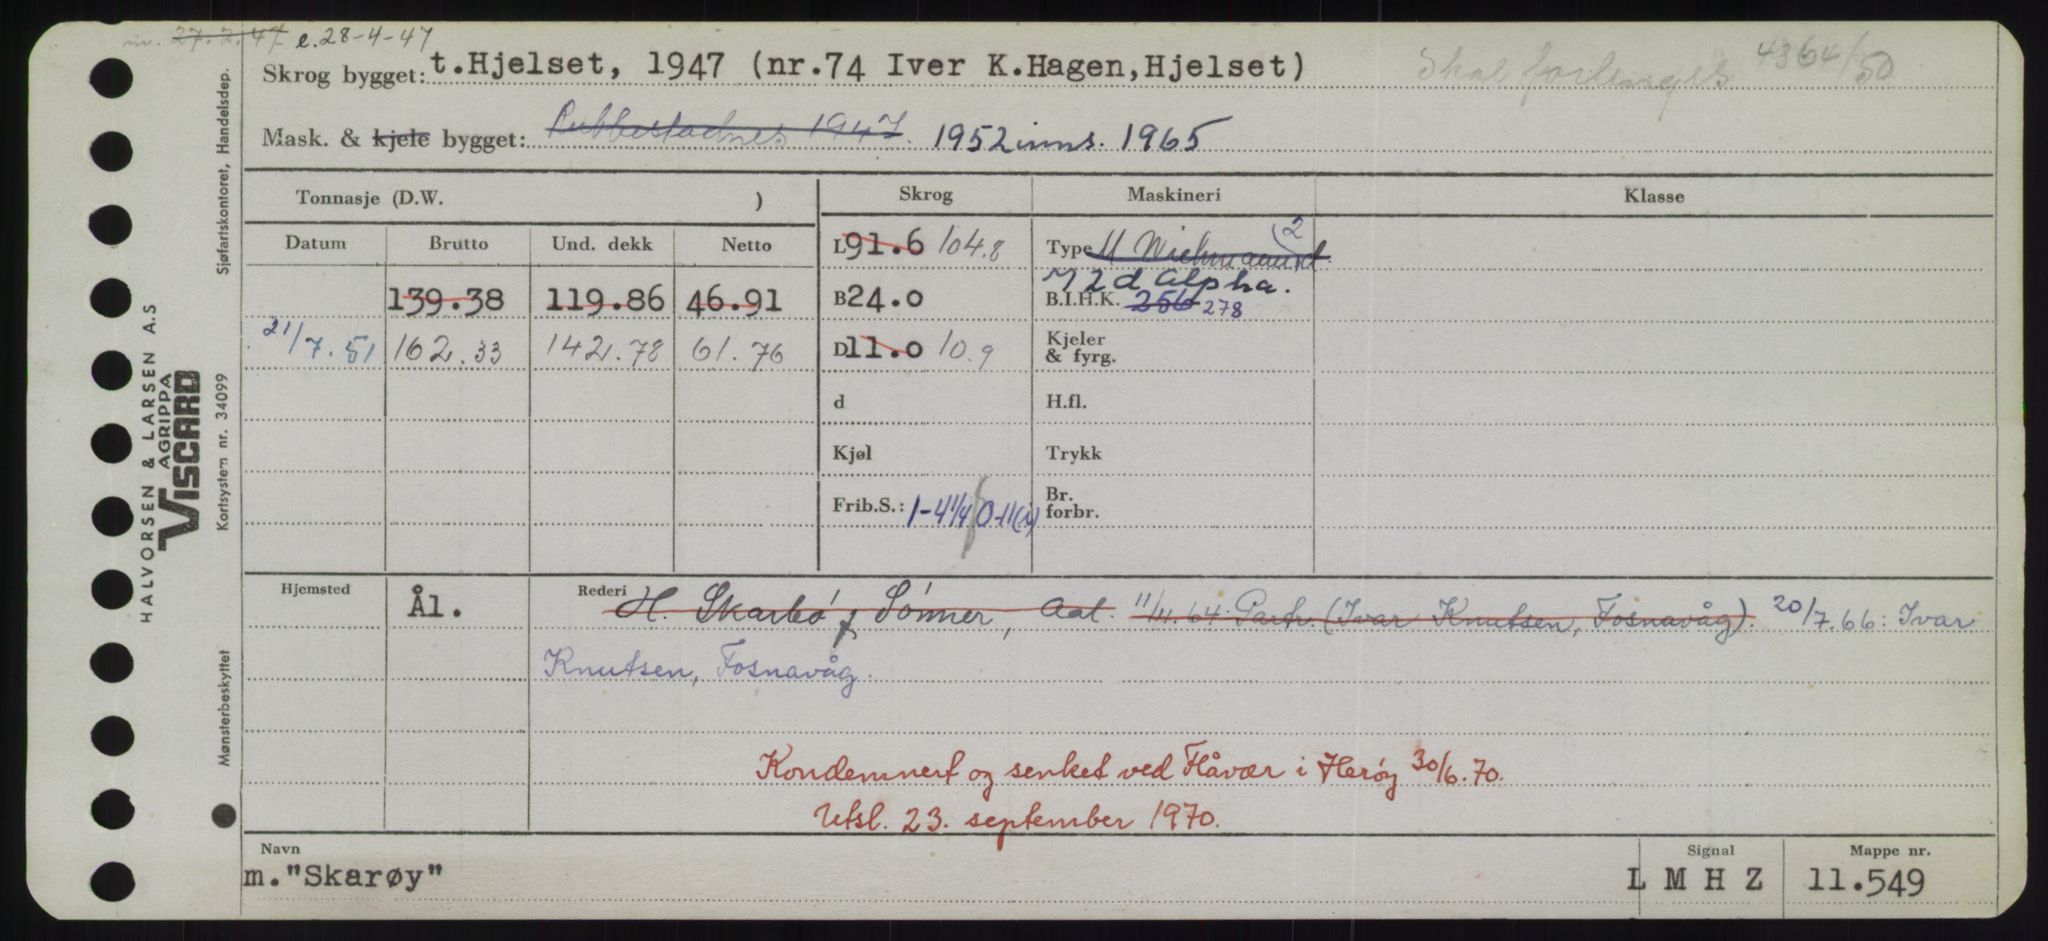 27.2.47 e. 28-4-47
Skrog bygget: t.Hjelset, 1947 (nr.74 Iver K.Hagen,Hjelset) Skal forlenges 4364/50
Mask. & kjele bygget: Rubbestadnes 1947. 1952 inns. 1965
Tonnasje (D.W. ) Skrog Maskineri Klasse
Datum Brutto Und. dekk Netto L 91.6 104.8 Type M Wichmann 2
139.38 119.86 46.91 B 24.0 B.I.H.K. 256 278
M 2 d Alpha.
21/7.51 162.33 142.78 61.76 D 11.0 10.9 Kjeler & fyrg.
d H.fl.
Kjøl Trykk
Frib.S.: 1-4 1/4 0-11(i) Br. forbr.
Hjemsted Ål. Rederi H. Skarbø & Sønner, Aal. 11/11.64 Partr. (Ivar Knutsen, Fosnavåg). 20/7.66: Ivar
Knutsen, Fosnavåg.
Kondemnert og senket ved Flåvær i Herøy 30/6.70.
Utsl. 23. september 1970.
Navn Signal Mappe nr.
m."Skarøy" L M H Z 11.549
HALVORSEN & LARSEN A.S
AGRIPPA
VISCARD
Sjøfartskontoret, Handelsdep.
Kortsystem nr. 34099
Mønsterbeskyttet